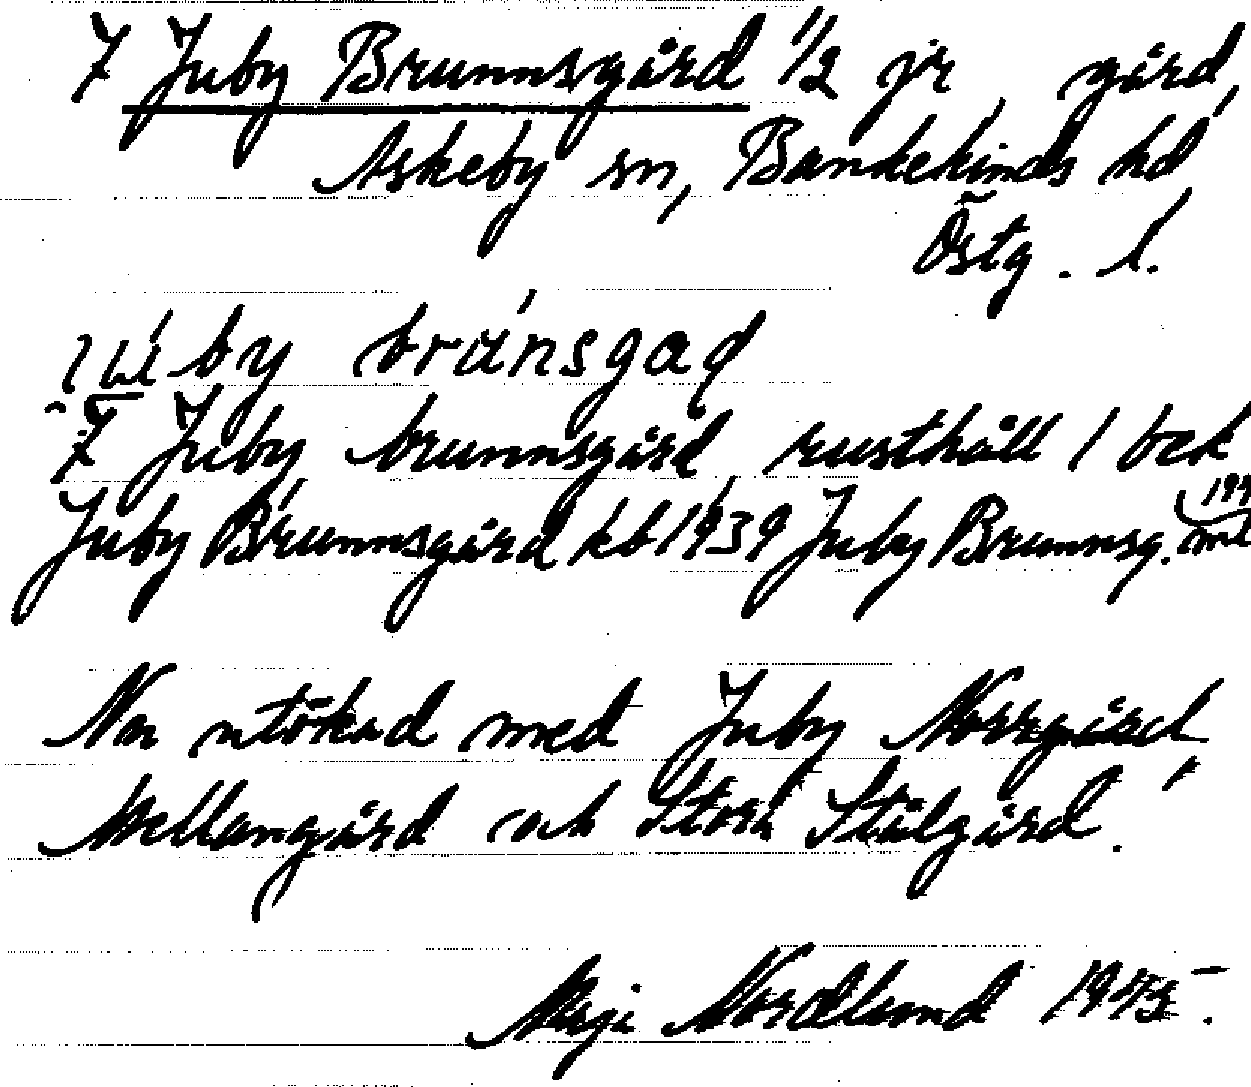 7 Juby Brunnsgård 1/2 jr, gård,
Askeby sn, Bankekinds hd,
Östg. l.
by
7 Juby brunnsgård, rusthåll 1 bek
Juby Brunnsgård kb 1939 Juby Brunnsg.
Nu utökad med Juby Norrgård,
Mellangård och Stora Stålgård.
Maji Nordlund 1945.